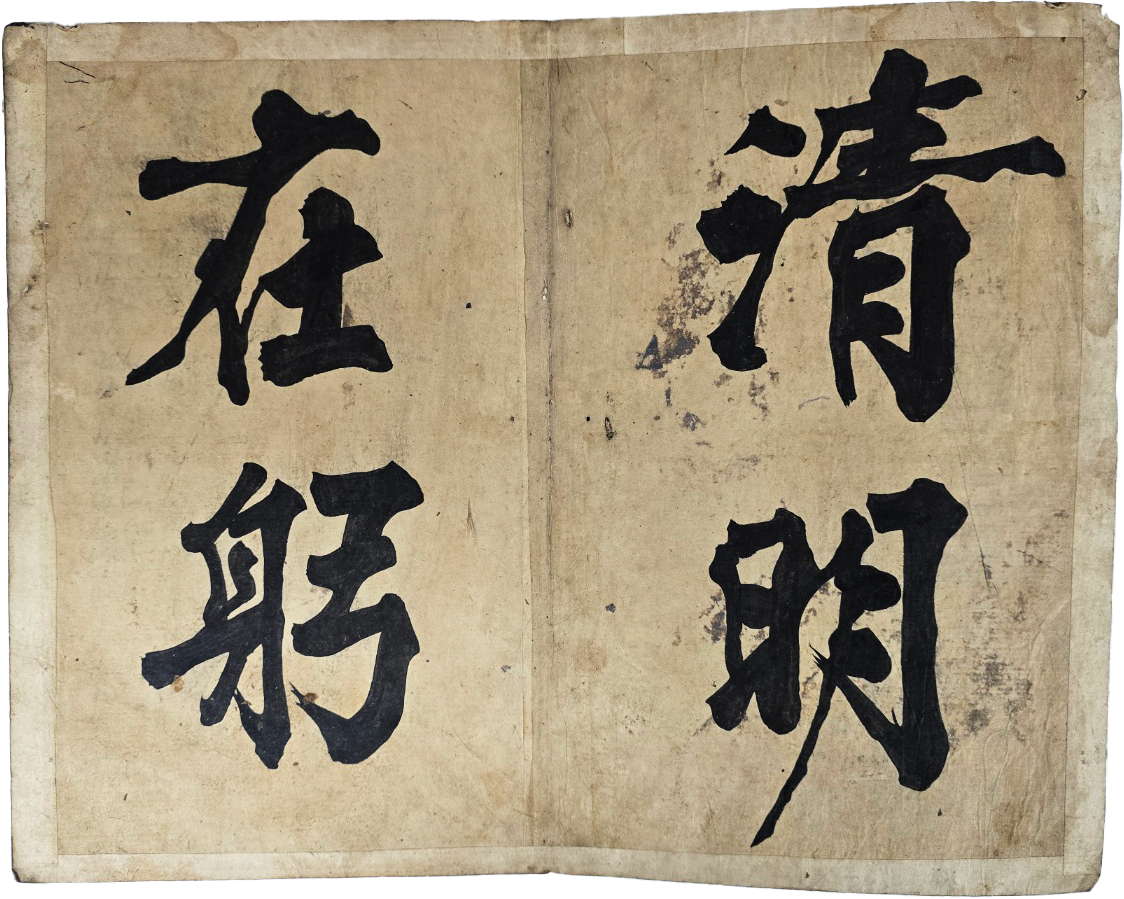 清明
在躬